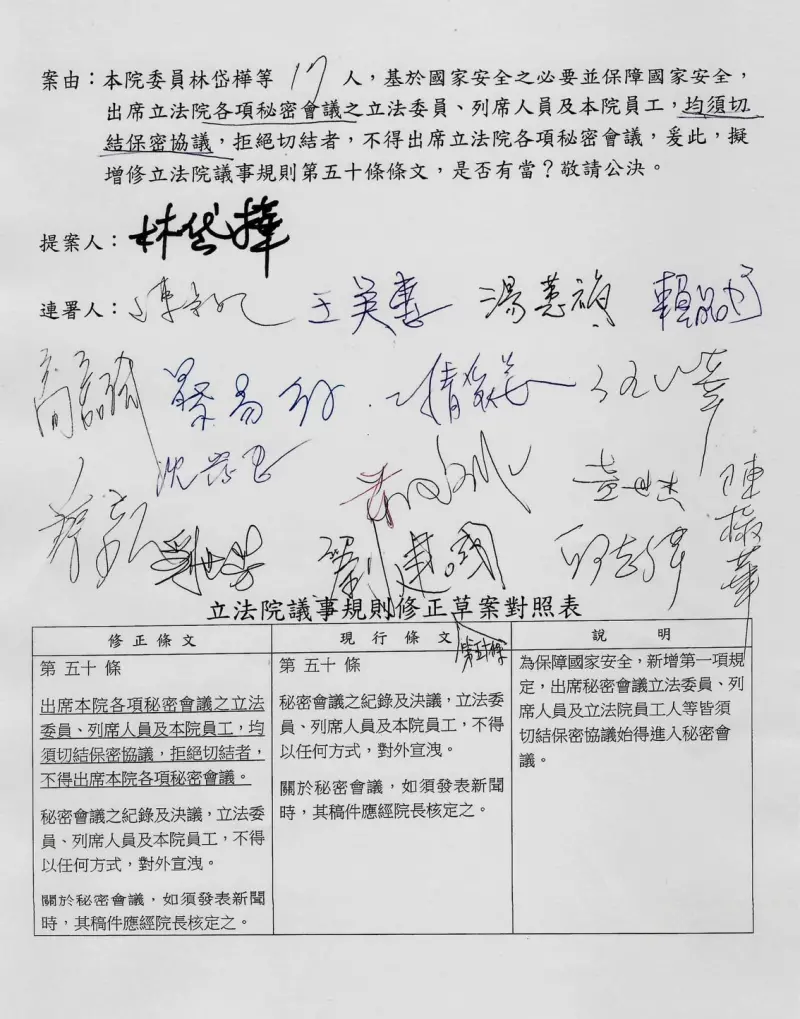 案由：本院委員林岱樺等 17 人，基於國家安全之必要並保障國家安全，
出席立法院各項秘密會議之立法委員、列席人員及本院員工，均須切
結保密協議，拒絕切結者，不得出席立法院各項秘密會議，爰此，擬
增修立法院議事規則第五十條條文，是否有當？敬請公決。
提案人：林岱樺
連署人：王美惠 湯蕙禎 賴品妤
蔡易餘
沈發惠 黃世杰 陳椒華
劉世芳 劉建國 邱志偉
立法院議事規則修正草案對照表
修正條文
第 五十 條
出席本院各項秘密會議之立法
委員、列席人員及本院員工，均
須切結保密協議，拒絕切結者，
不得出席本院各項秘密會議。
秘密會議之紀錄及決議，立法委
員、列席人員及本院員工，不得
以任何方式，對外宣洩。
關於秘密會議，如須發表新聞
時，其稿件應經院長核定之。
現行條文
第 五十 條
秘密會議之紀錄及決議，立法委
員、列席人員及本院員工，不得
以任何方式，對外宣洩。
關於秘密會議，如須發表新聞
時，其稿件應經院長核定之。
說明
為保障國家安全，新增第一項規
定，出席秘密會議立法委員、列
席人員及立法院員工人等皆須
切結保密協議始得進入秘密會
議。